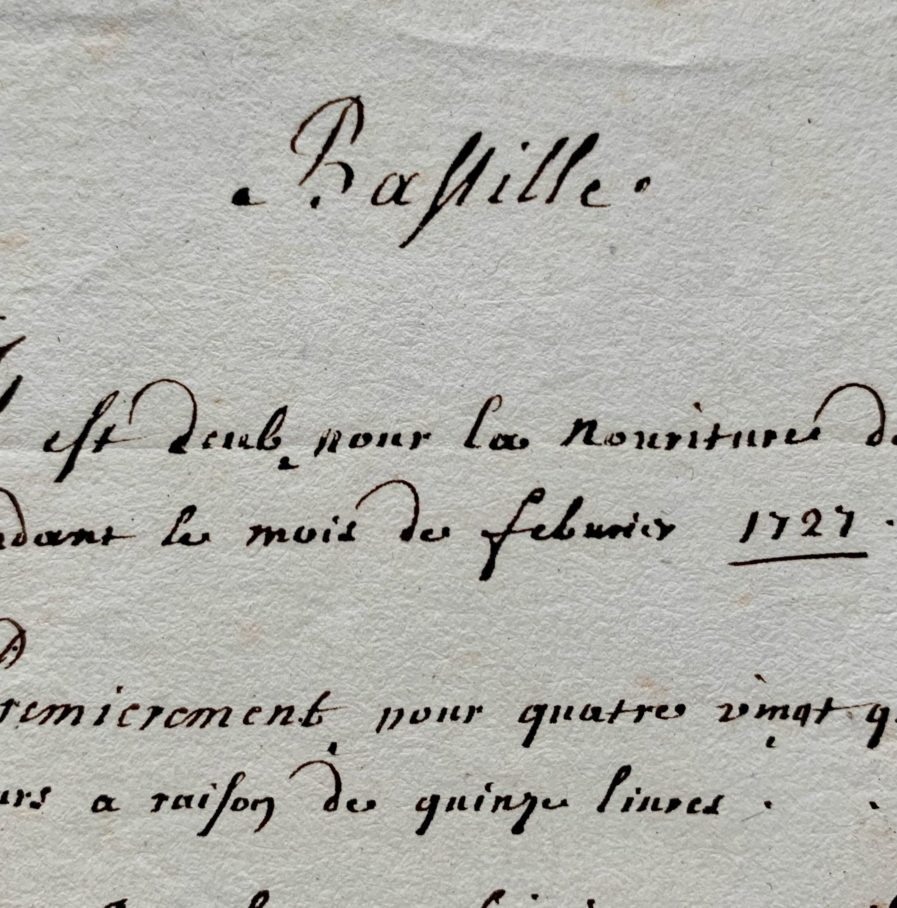 . Bastille .
est deub pour la nouriture de
ndant le mois de feburier 1727 .
remierement pour quatre vingt q
urs a raison de quinze liures . .